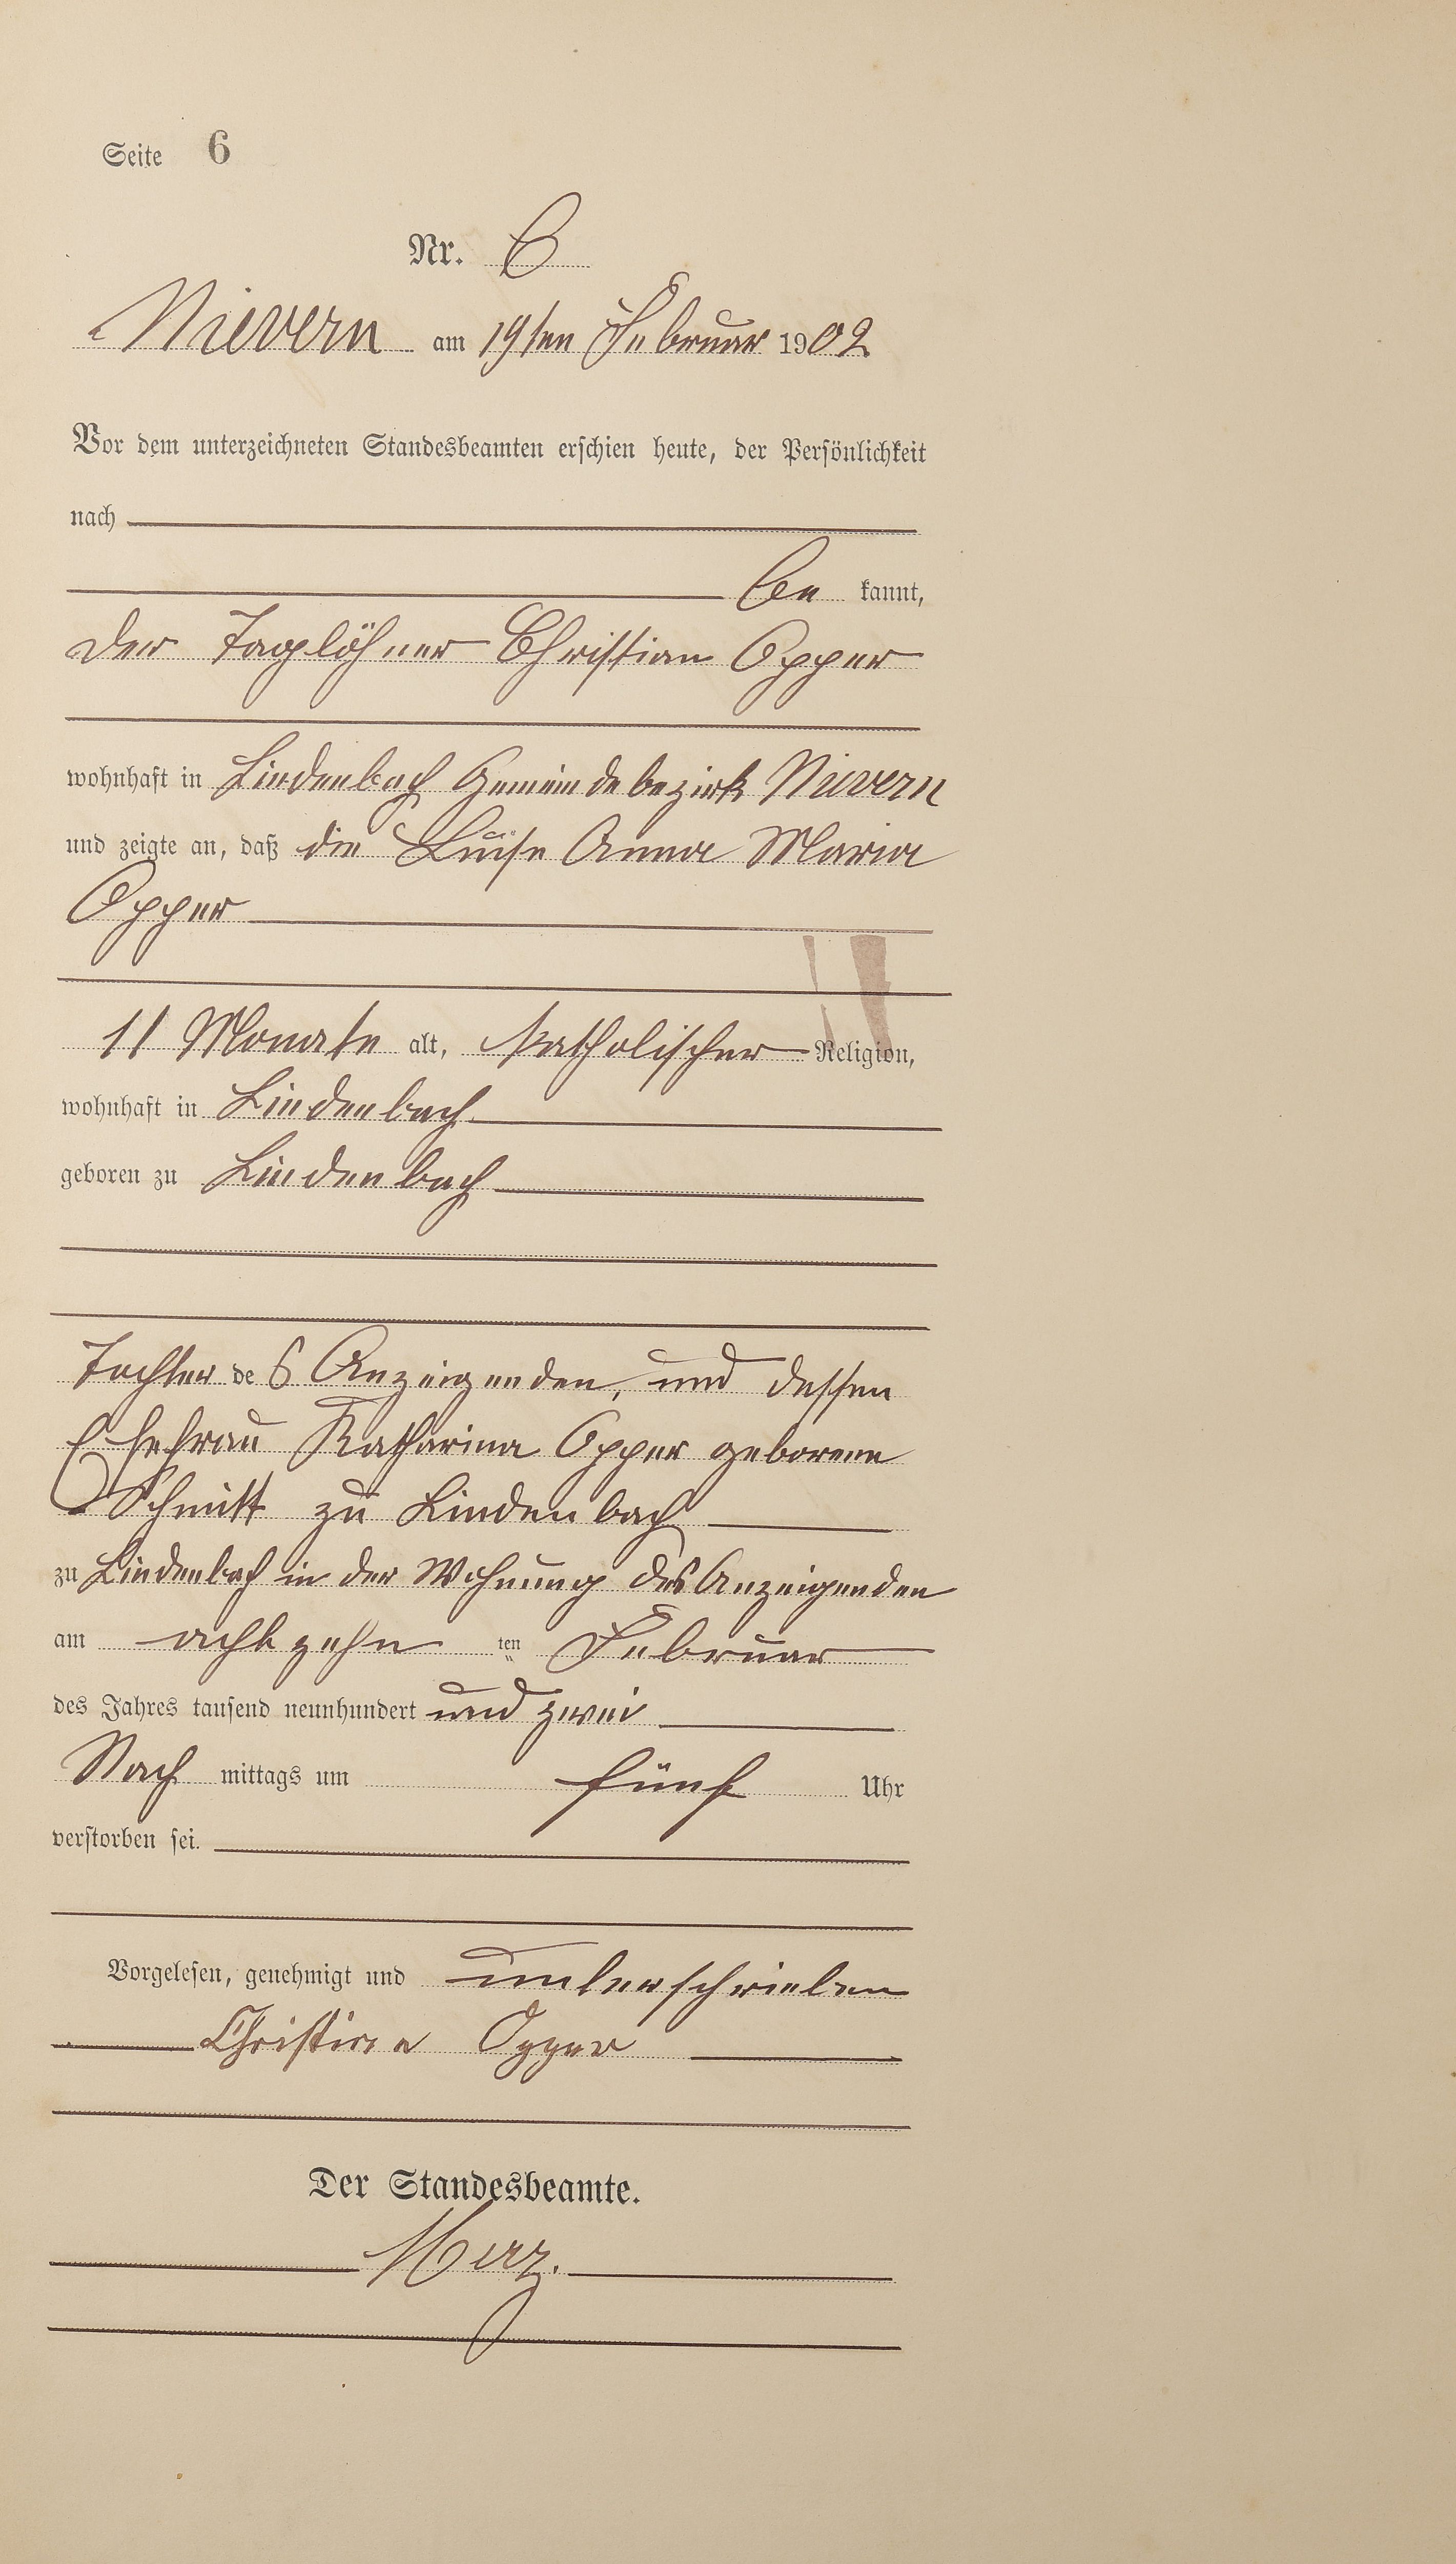 Seite 6
Nr. 6
Nievern am 19ten Februar 1902
Vor dem unterzeichneten Standesbeamten erschien heute, der Persönlichkeit
nach
be kannt,
der Taglöhner Christian Opper
wohnhaft in Lindenbach Gemeindebezirk Nievern
und zeigte an, daß die Luise Anna Maria
Opper
11 Monate alt, katholischer Religion,
wohnhaft in Lindenbach
geboren zu Lindenbach
Tochter des Anzeigenden, und dessen
Ehefrau Katharina Opper geborene
Schmitt zu Lindenbach
zu Lindenbach in der Wohnung des Anzeigenden
am achtzehn ten Februar
des Jahres tausend neunhundert und zwei
Nach mittags um fünf Uhr
verstorben sei.
Vorgelesen, genehmigt und unterschrieben
Christian Opper
Der Standesbeamte.
Merz.